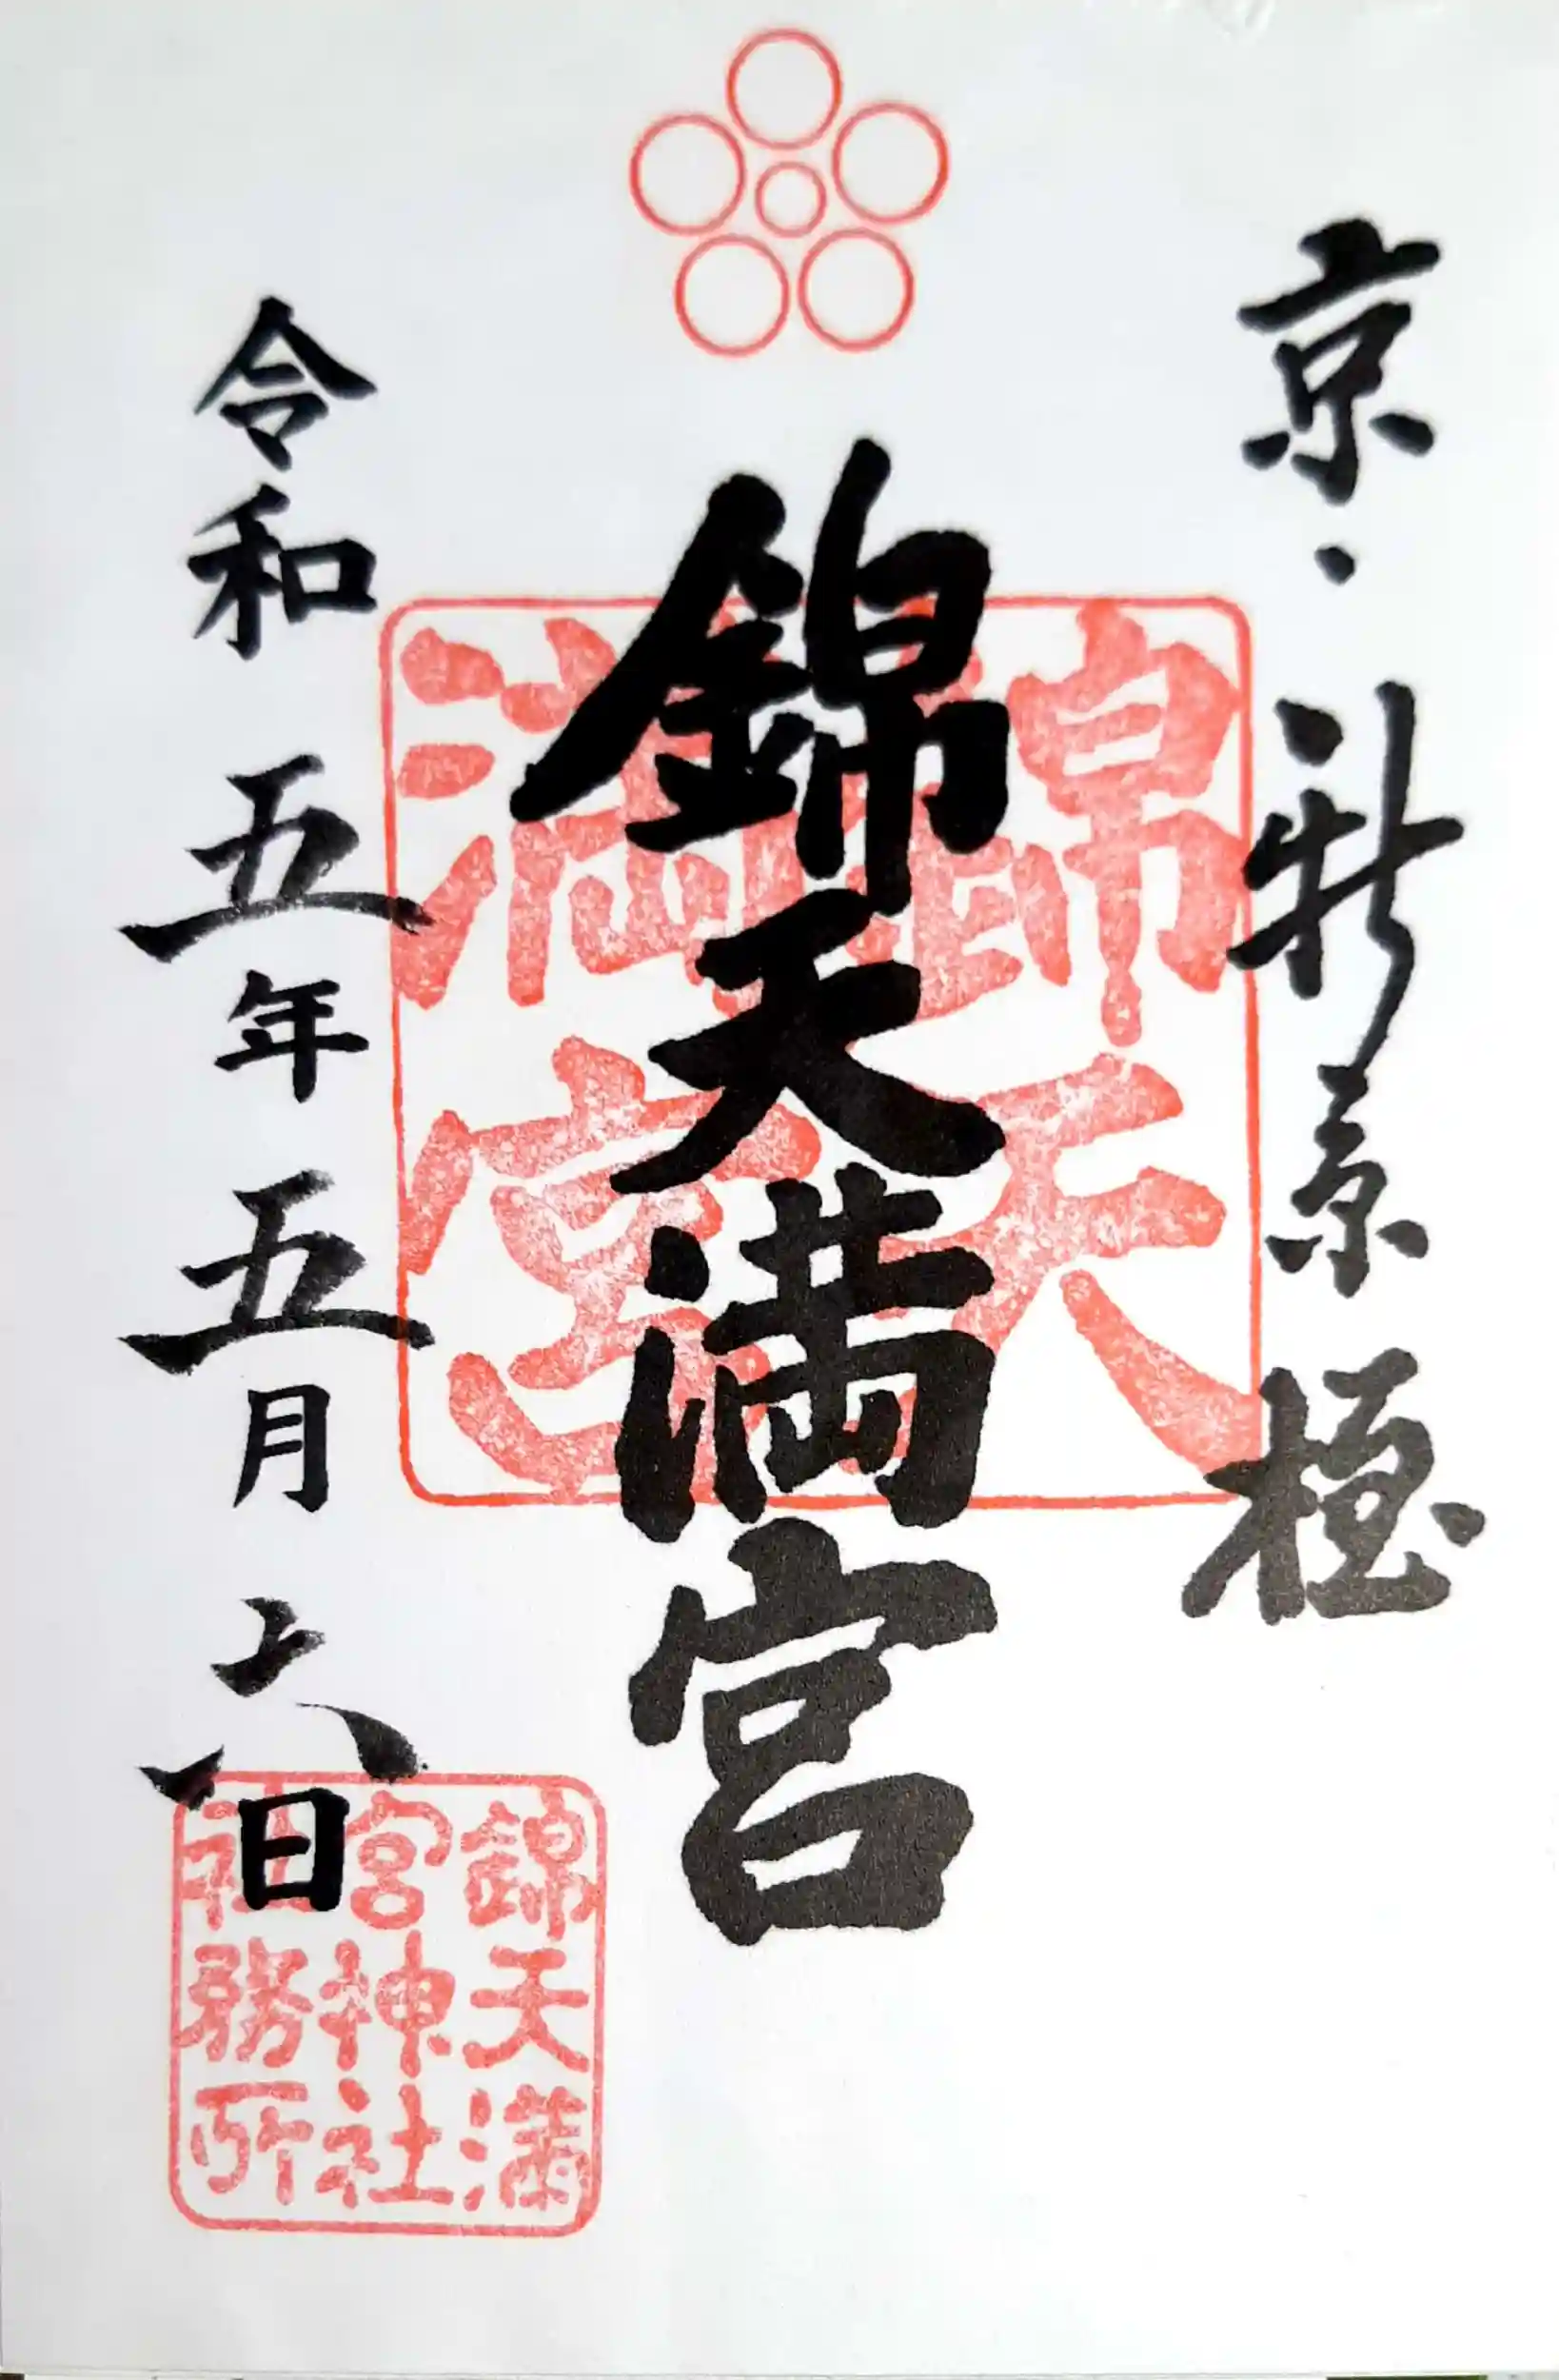 京・新京極
錦天満宮
錦天
満宮
令和五年五月六日
錦天満
宮神社
社務所